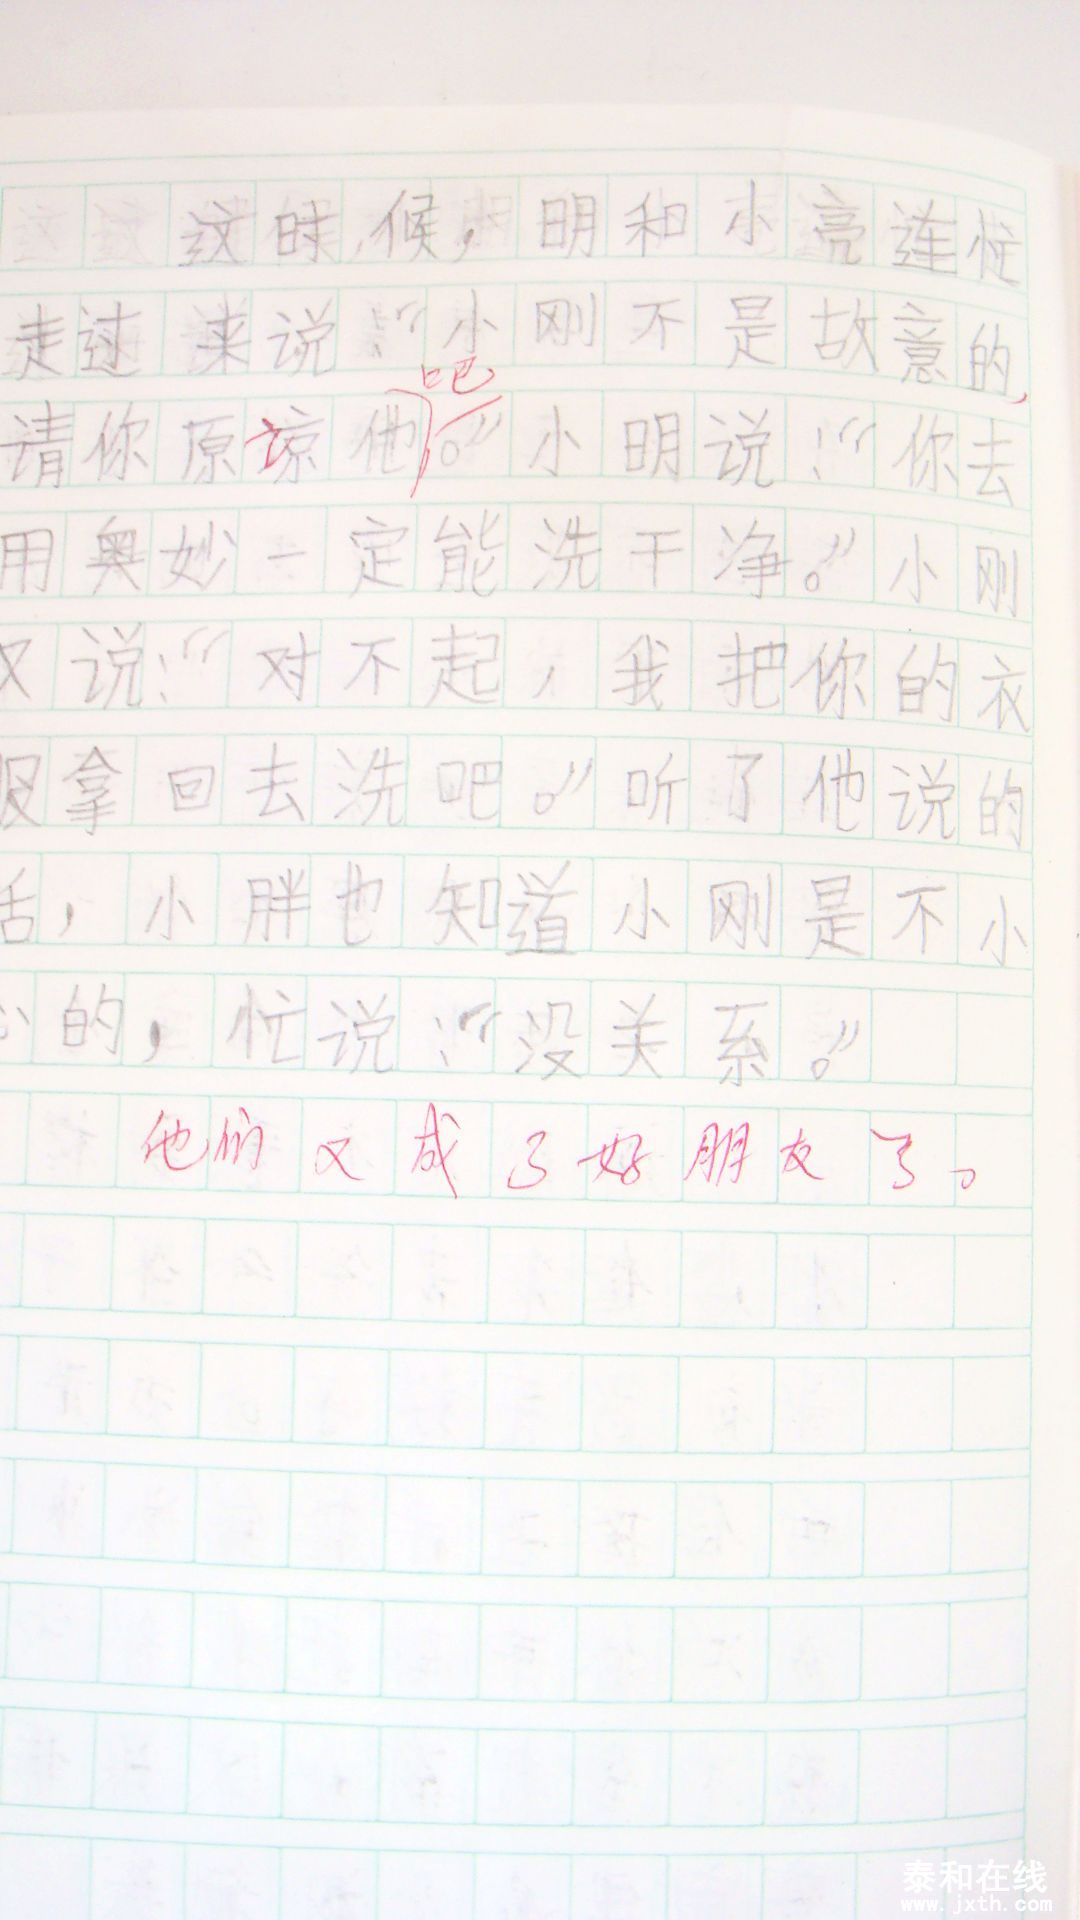 这时候，明和小亮连忙
走过来说：“小刚不是故意的，
请你原谅他吧。”小明说：“你去
用奥妙一定能洗干净。”小刚
又说：“对不起，我把你的衣
服拿回去洗吧。”听了他说的
话，小胖也知道小刚是不小
心的，忙说：“没关系。”
他们又成了好朋友了。
泰和在线
www.jxth.com